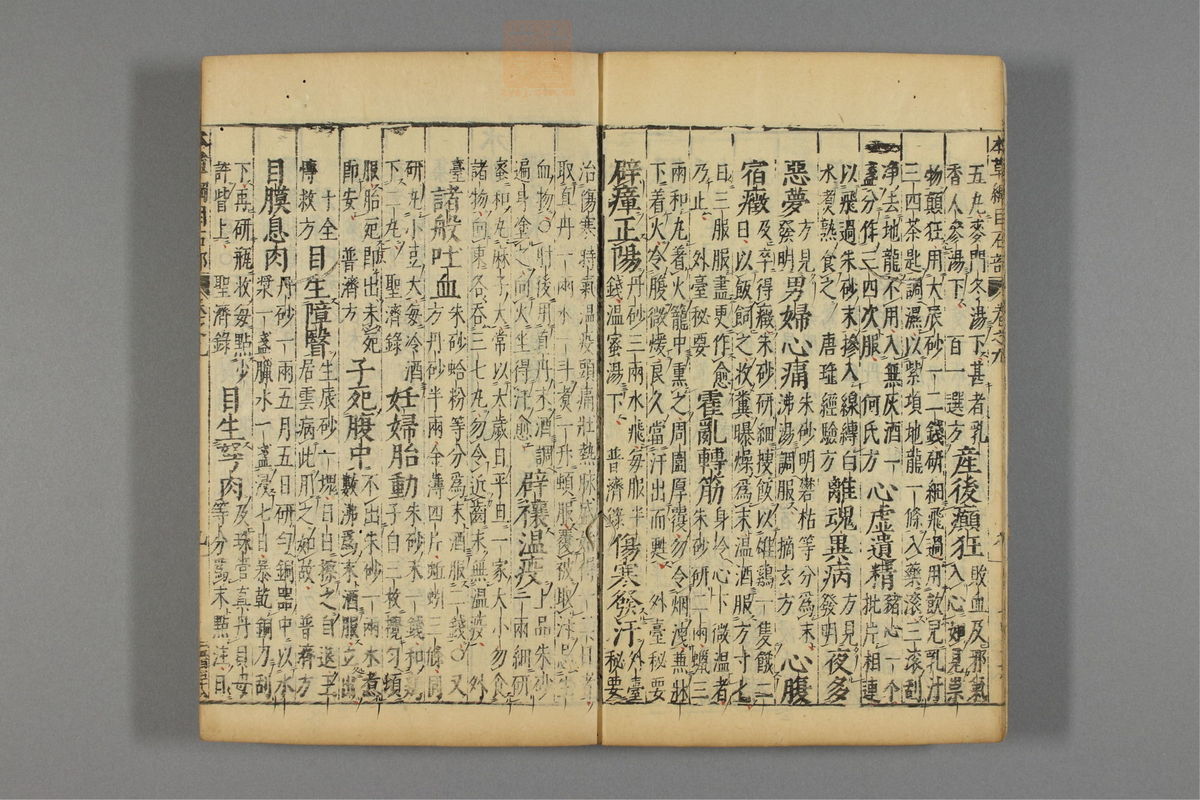 五丸麥門冬湯下甚者乳
香人參湯下 百一選方
產後癲狂
敗血及邪氣
入心如見祟
物顛狂用大辰砂一二錢研細飛過用飲兒乳汁
三四茶匙調濕以紫項地龍一條入藥滾三滾刮
净去地龍不用入無灰酒一
盞分作三四次服 何氏方
心虛遺精
豬心一个
批片相連
以飛過朱砂末摻入線縛白
水煑熟食之 唐瑤經驗方
離魂異病
方見
發明
夜多
惡夢
方見
發明
男婦心痛
朱砂明礬枯等分為末
沸湯調服 摘玄方
心腹
宿癥
及卒得癥朱砂研細搜飯以雄鷄一隻餓二
日以飯飼之收糞曝燥為末温酒服方寸匕
日三服服盡更作愈
乃止 外臺秘要
霍亂轉筋
身冷心下微温者
朱砂研二兩蠟三
兩和丸着火籠中熏之周圍厚覆勿令烟泄兼牀
下着火令腹微煖良久當汗出而甦 外臺秘要
辟瘴正陽
丹砂三兩水飛每服半
錢温蜜湯下 普濟錄
傷寒發汗
外臺
秘要
治傷寒時氣温疫頭痛壯熱脉盛始得一二日者
取眞丹一兩水一斗煑一升頓服覆被取汗忌生
血物○肘後用眞丹末酒調
遍身塗之向火坐得汗愈
辟禳温疫
上品朱砂
一兩細研
蜜和丸麻子大常以太歲日平旦一家大小勿食
諸物向東各吞三七丸勿令近齒永無温疫 外
臺
諸般吐血
朱砂蛤粉等分為末酒服二錢○又
方丹砂半兩金薄四片蚯蚓三條同
研丸小豆大每冷酒
下二丸 聖濟錄
妊婦胎動
朱砂末一錢和雞
子白三枚攪勻頓
服胎死即出未死
即安 普濟方
子死腹中
不出朱砂一兩水煑
數沸為末酒服立出
十全
博救方
目生障翳
生辰砂一塊日日擦之自退王
居雲病此用之如故 普濟方
目膜息肉
丹砂一兩五月五日研勻銅器中以水
漿一盞臘水一盞浸七日暴乾銅刀刮
下再研瓶收每點少
許眥上○聖濟錄
目生弩肉
及珠管眞丹貝母
等分為末點注日